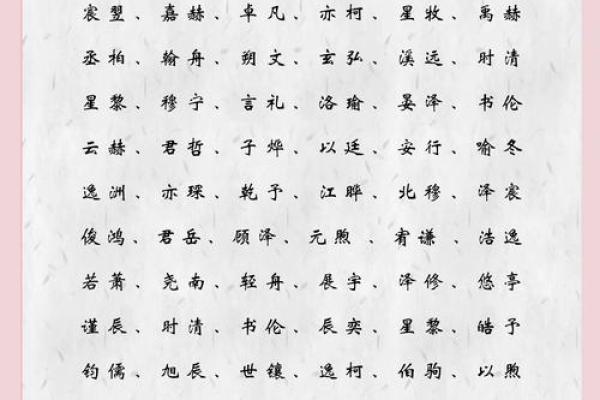 宸翌、嘉赫、卓凡、亦柯、星牧、禹赫
丞柏、翰舟、朔文、玄弘、溪远、时清
星黎、穆宁、言礼、洛瑜、晏泽、书伦
云赫、君哲、子烨、以廷、安行、喻冬
逸洲、亦琛、乾予、江晔、北穆、泽宸
俊鸿、君岳、顾泽、元煦、宥谦、浩逸
若萧、尧南、轻舟、展宇、泽修、悠亭
谨辰、时清、书伦、辰奕、星黎、皓予
钧儒、旭辰、世镶、逸柯、伯驹、以煦